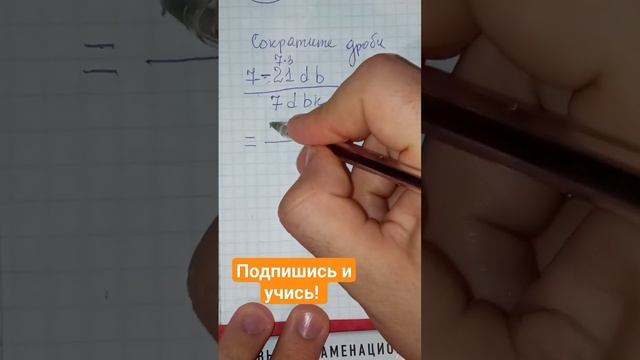 Сократите дроби
7·3
7-21db
7dbk
=
Подпишись и
учись!